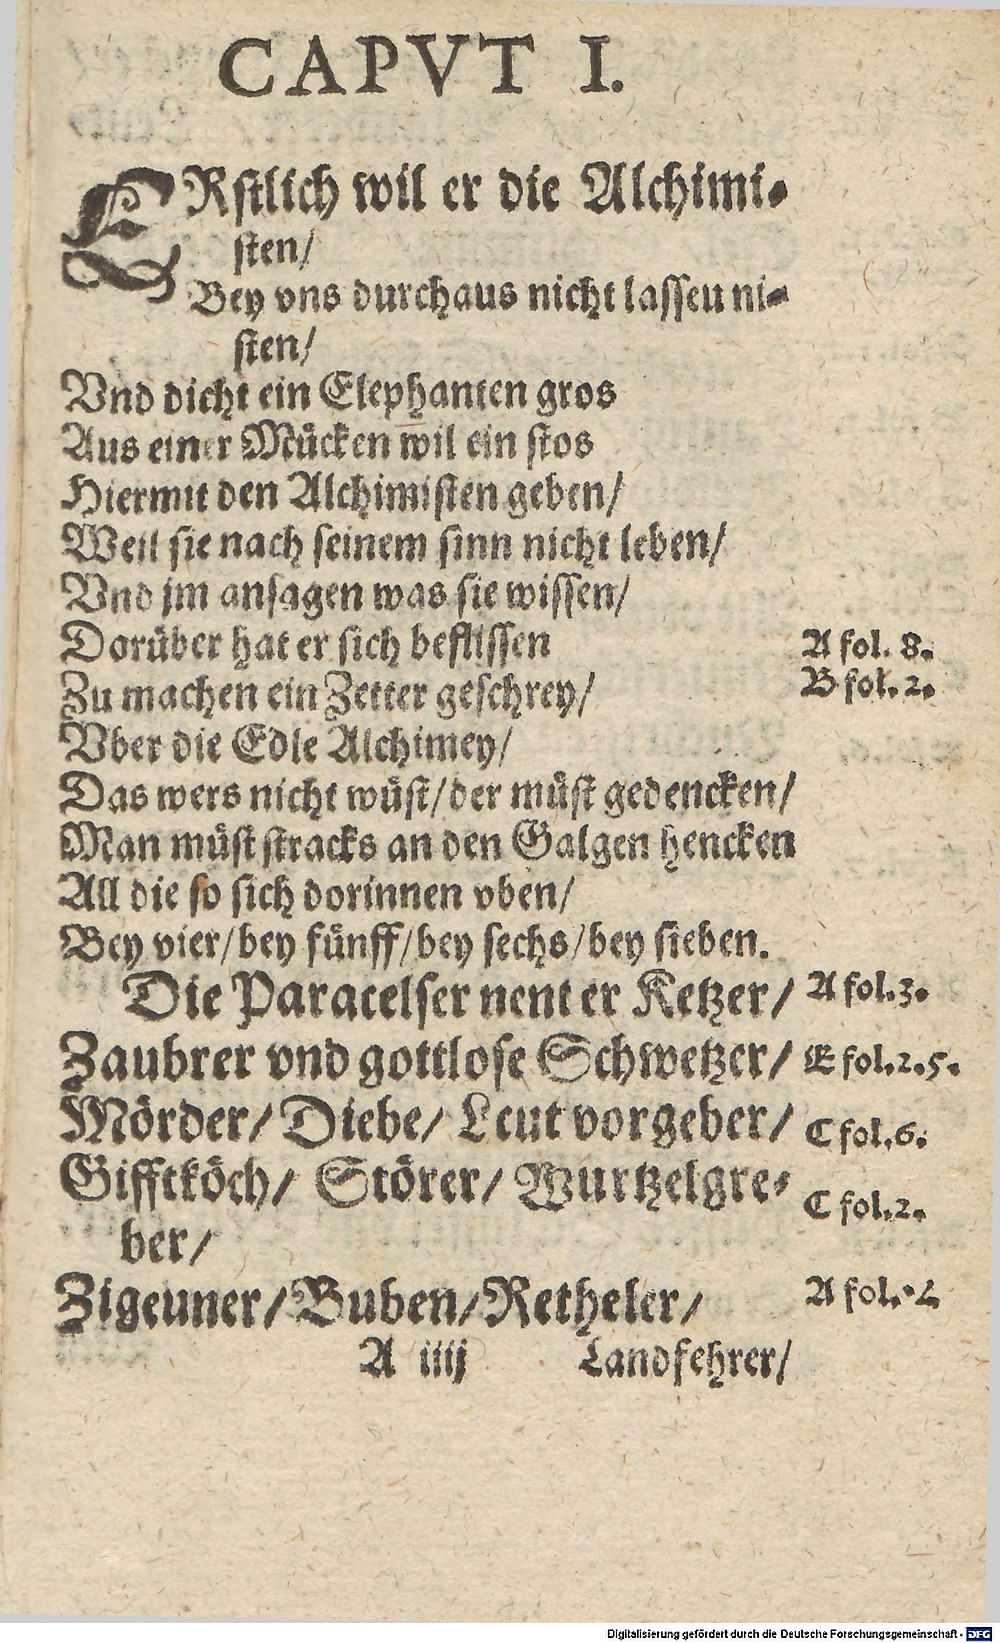 CAPVT I.
ERstlich wil er die Alchimi-
sten/
Bey vns durchaus nicht lasseu ni-
sten/
Vnd dicht ein Elephanten gros
Aus einer Mücken wil ein stos
Hiermit den Alchimisten geben/
Weil sie nach seinem sinn nicht leben/
Vnd jm ansagen was sie wissen/
Dorüber hat er sich beflissen
A fol. 8.
Zu machen ein Zetter geschrey/
B fol. 2.
Vber die Edle Alchimey/
Das wers nicht wüst/der müst gedencken/
Man müst stracks an den Galgen hencken
All die so sich dorinnen vben/
Bey vier/bey fünff/bey sechs/bey sieben.
Die Paracelser nent er Ketzer/
A fol.3.
Zaubrer vnd gottlose Schwetzer/
E fol.2.5.
Mörder/ Diebe/ Leut vorgeber/
C fol.6.
Gifftköch/ Störer/ Wurtzelgre-
C fol.2.
ber/
Zigeuner/Buben/Retheler/
A fol.
A iiij
Landfehrer/
Digitalisierung gefördert durch die Deutsche Forschungsgemeinschaft - DFG